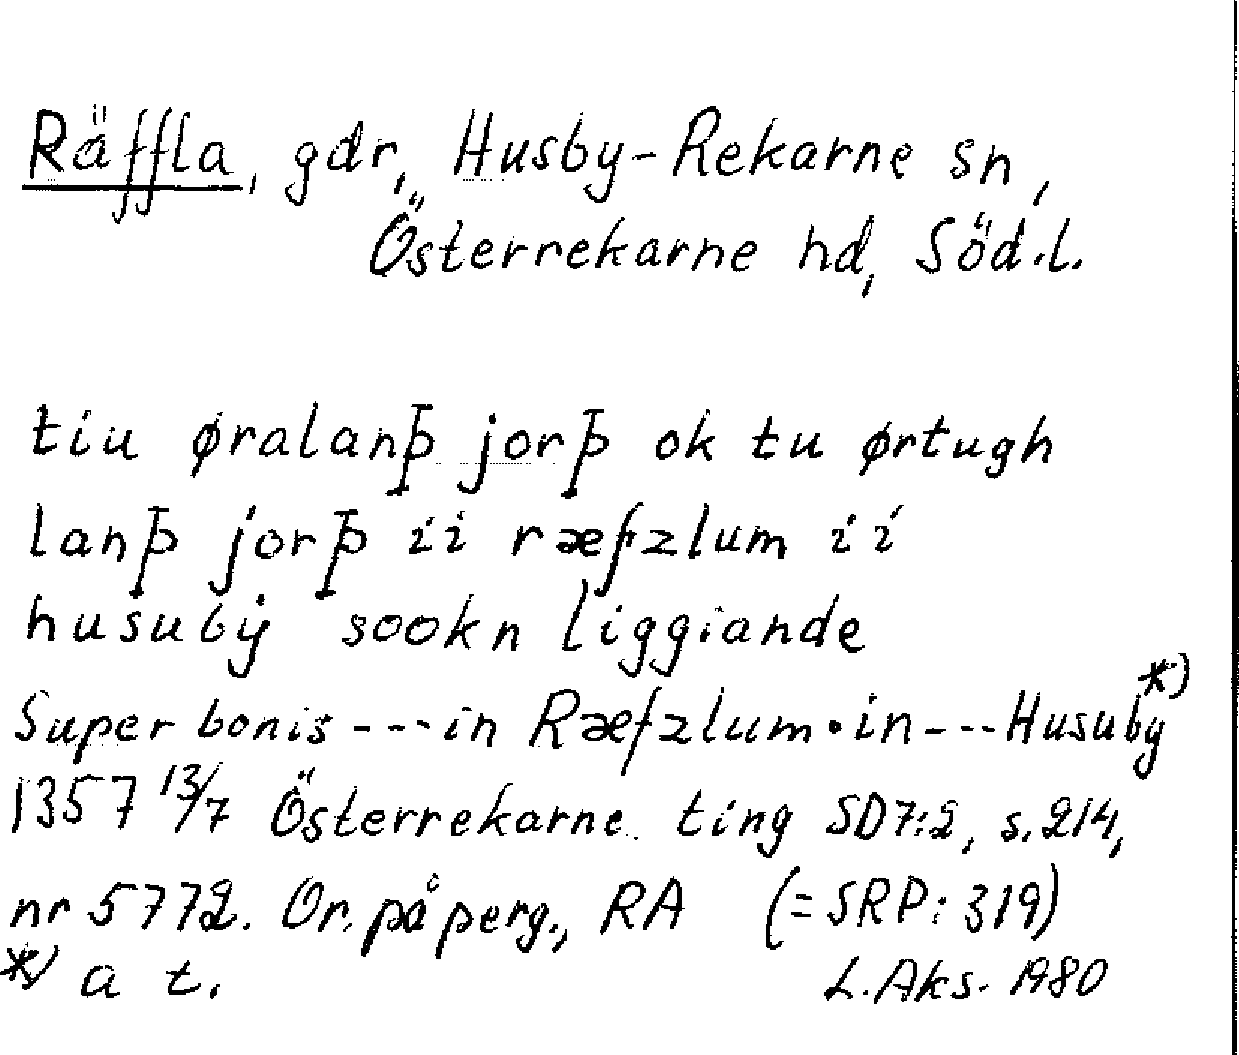 Räffla, gdr, Husby-Rekarne sn,
Österrekarne hd, Söd.l.
tiu øralanþ jorþ ok tu ørtugh
lanþ jorþ ii ræfzlum ii
husuby sookn liggiande
Super bonis---in Ræfzlum·in---Husuby *)
1357 13/7 Österrekarne ting SD7:2, s.214,
nr 5772. Or. på perg., RA (=SRP: 319)
*) a t.
L.Aks. 1980